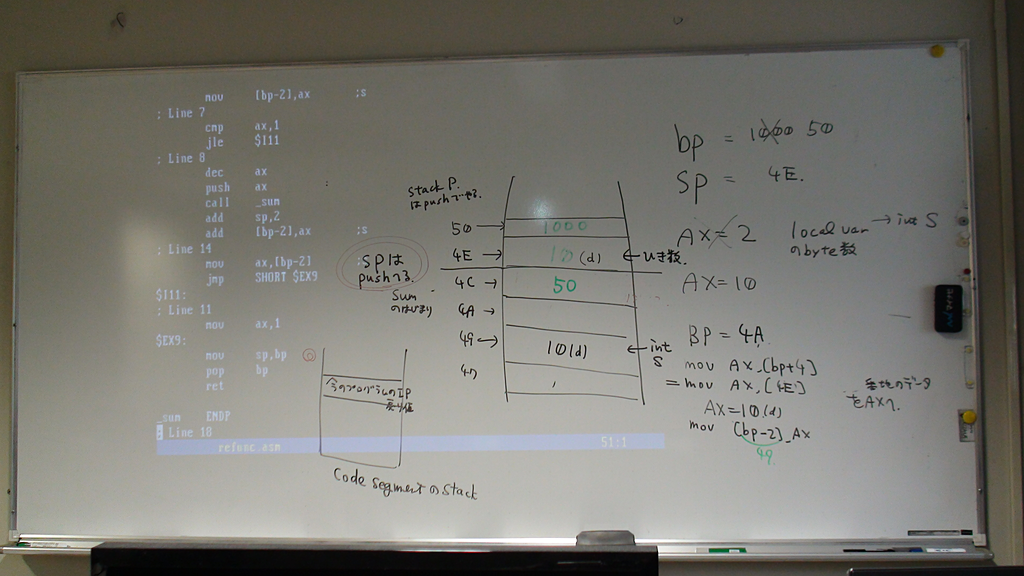 mov [bp-2],ax ;s
; Line 7
cmp ax,1
jle $I11
; Line 8
dec ax
push ax
call _sum
add sp,2
add [bp-2],ax ;s
; Line 14
mov ax,[bp-2] ;s
jmp SHORT $EX9
$I11:
; Line 11
mov ax,1
$EX9:
mov sp,bp
pop bp
ret
_sum ENDP
; Line 18
refunc.asm 51:1
stack P.
はpushでへる
50 → 1000
4E → 10(d) ← ひき数.
4C → 50
4A →
49 → 10(d) ← int S
47
spは
pushへる
sum
のはじまり
今のプログラムのIP
戻り値
Code segmentのstack
bp = 1000 50
SP = 4E.
AX = 2
local var → int S
のbyte数
AX = 10
BP = 4A
mov AX,[bp+4]
= mov AX,[4E]
番地のデータ
をAXへ.
AX=10(d)
mov [bp-2],Ax
49